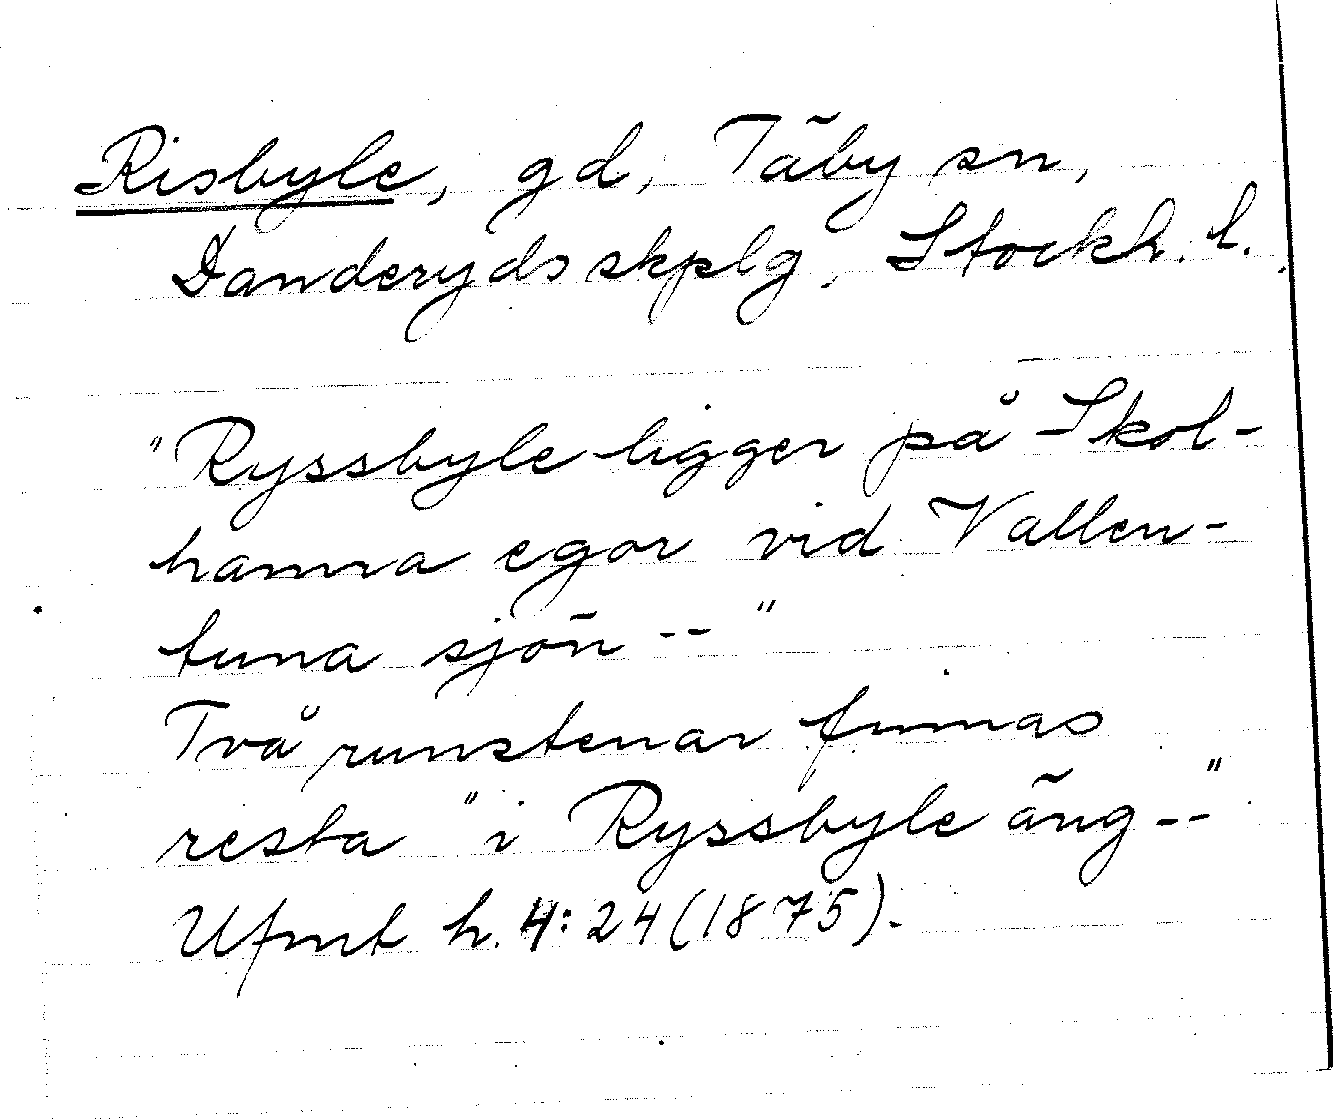 Risbyle, gd, Täby sn,
Danderyds skplg, Stockh. l.
"Ryssbyle ligger på Skol-
hamra egor vid Vallen-
tuna sjön -- "
Två runstenar finnas
resta "i Ryssbyle äng --"
Ufmt h. 4: 24 (1875).